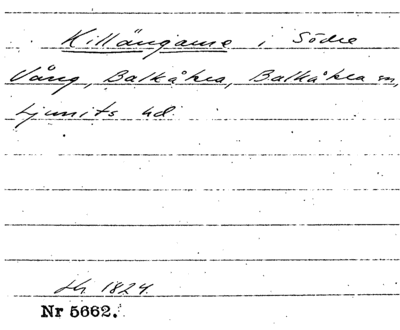 Killängarne i Södre
Vång, Balkåkra, Balkåkra sn,
Ljunits hd.
Lh. 1824.
Nr 5662.